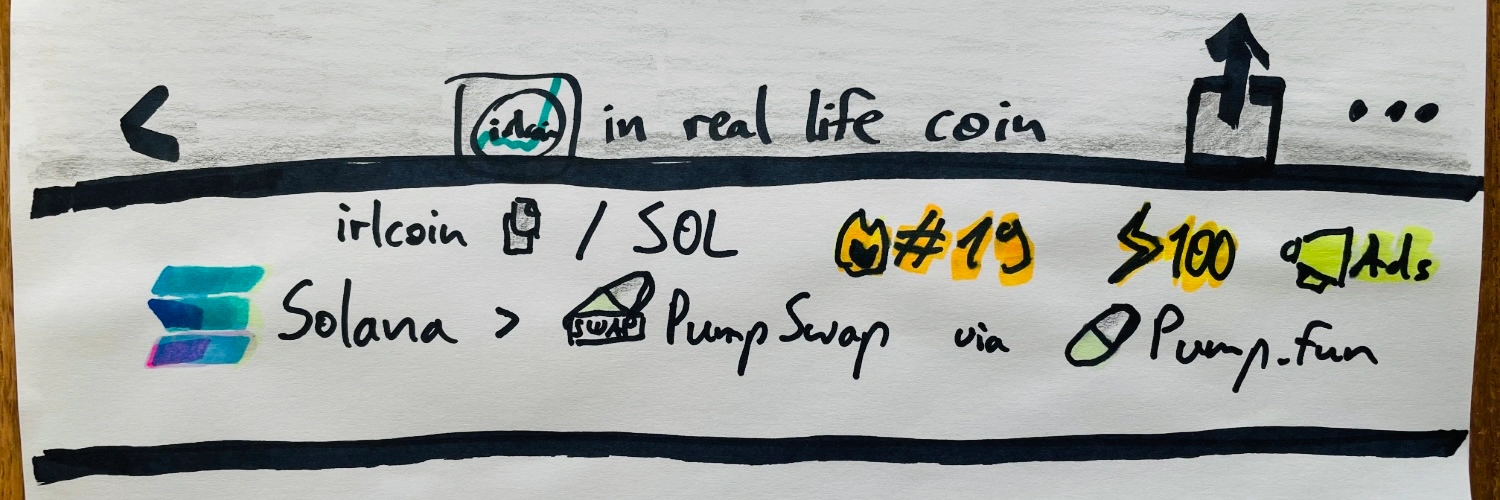 < irlcoin in real life coin ...
irlcoin / SOL #19 ⚡100 Ads
Solana > SWAP PumpSwap via Pump.fun